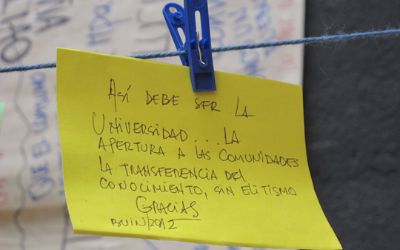 ASÍ DEBE SER LA
UNIVERSIDAD... LA
APERTURA A LAS COMUNIDADES
LA TRANSFERENCIA DEL
CONOCIMIENTO, SIN ELITISMO
GRACIAS
BUIN/2012